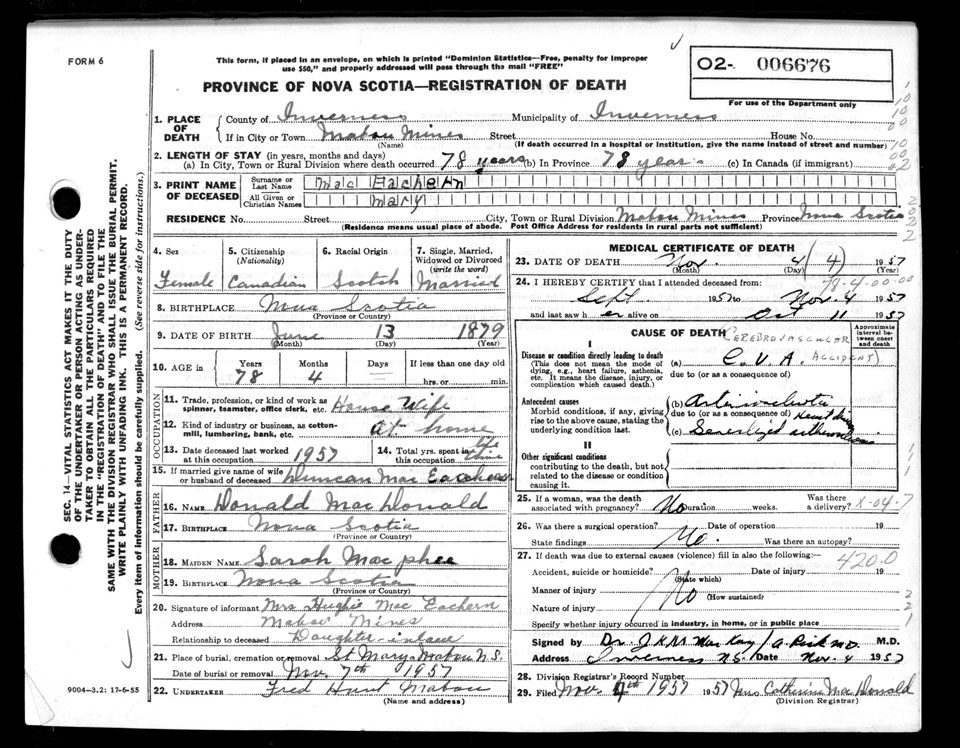 FORM 6
This form, if placed in an envelope, on which is printed "Dominion Statistics—Free, penalty for improper
use $50," and properly addressed will pass through the mail "FREE"
02- 006676
For use of the Department only
PROVINCE OF NOVA SCOTIA—REGISTRATION OF DEATH
1. PLACE OF DEATH
County of Inverness Municipality of Inverness
If in City or Town Mabou Mines Street House No.
(Name) (If death occurred in a hospital or institution, give the name instead of street and number)
2. LENGTH OF STAY (in years, months and days)
(a) In City, Town or Rural Division where death occurred 78 years (b) In Province 78 years (c) In Canada (if immigrant)
3. PRINT NAME OF DECEASED
Surname or Last Name Mac Eachern
All Given or Christian Names Mary
RESIDENCE No. Street City, Town or Rural Division Mabou Mines Province Nova Scotia
(Residence means usual place of abode. Post Office Address for residents in rural parts not sufficient)
4. Sex Female
5. Citizenship (Nationality) Canadian
6. Racial Origin Scotch
7. Single, Married, Widowed or Divorced (write the word) Married
8. BIRTHPLACE Nova Scotia
(Province or Country)
9. DATE OF BIRTH June 13 1879
(Month) (Day) (Year)
10. AGE in Years 78 Months 4 Days If less than one day hrs. or min.
OCCUPATION
11. Trade, profession, or kind of work as spinner, teamster, office clerk, etc. House Wife
12. Kind of industry or business, as cotton-mill, lumbering, bank, etc. at home
13. Date deceased last worked at this occupation 1957
14. Total yrs. spent in this occupation life time
15. If married give name of wife or husband of deceased Duncan Mac Eachern
FATHER
16. NAME Donald Mac Donald
17. BIRTHPLACE Nova Scotia
(Province or Country)
MOTHER
18. MAIDEN NAME Sarah Macphee
19. BIRTHPLACE Nova Scotia
(Province or Country)
20. Signature of informant Mrs Hughie Mac Eachern
Address Mabou Mines
Relationship to deceased Daughter-inlaw
21. Place of burial, cremation or removal St Marys Mabou N.S.
Date of burial or removal Nov. 7th 1957
22. UNDERTAKER Fred Hunt Mabou
(Name and address)
MEDICAL CERTIFICATE OF DEATH
23. DATE OF DEATH Nov 4 (4) 1957
(Month) (Day) (Year)
78-4-00-00
24. I HEREBY CERTIFY that I attended deceased from
Sept 1957 to Nov. 4 1957
and last saw her alive on Oct 11 1957
CAUSE OF DEATH
Approximate interval between onset and death
CEREBROVASCULAR ACCIDENT)
I
Disease or condition directly leading to death
(This does not mean the mode of dying, e.g., heart failure, asthenia, etc. It means the disease, injury, or complication which caused death.)
(a) C.V.A.
due to (or as a consequence of)
Antecedent causes
Morbid conditions, if any, giving rise to the above cause, stating the underlying condition last.
(b)
due to (or as a consequence of) Heart
(c) Generalized
II
Other significant conditions
contributing to the death, but not related to the disease or condition causing it
25. If a woman, was the death associated with pregnancy? No Duration weeks. Was there a delivery? X-04-7
26. Was there a surgical operation? No. Date of operation 19
State findings Was there an autopsy?
27. If death was due to external causes (violence) fill in also the following:— 4200
Accident, suicide or homicide? Date of injury 19
(State which)
Manner of injury No
(How sustained)
Nature of injury
Specify whether injury occurred in industry, in home, or in public place
Signed by Dr. J K MacKay / M.D.
Address Inverness N.S. Date Nov. 4 1957
28. Division Registrar's Record Number
29. Filed Nov. 7th 1957 1957 Mrs Catherine Mac Donald
(Division Registrar)
SEC. 14—VITAL STATISTICS ACT MAKES IT THE DUTY
OF THE UNDERTAKER OR PERSON ACTING AS UNDER-
TAKER TO OBTAIN ALL THE PARTICULARS REQUIRED
IN THE "REGISTRATION OF DEATH" AND TO FILE THE
SAME WITH THE DIVISION REGISTRAR WHO SHALL ISSUE THE BURIAL PERMIT.
WRITE PLAINLY WITH UNFADING INK. THIS IS A PERMANENT RECORD.
Every item of information should be carefully supplied. (See reverse side for instructions.)
9004-3.2: 17-6-55